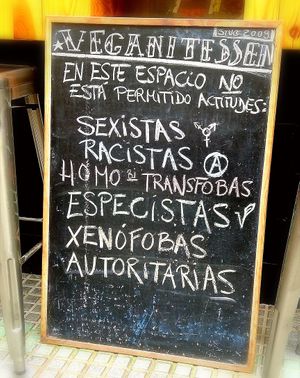 SINCE 2009
VEGANITESSEN
EN ESTE ESPACIO NO
ESTÁ PERMITIDO ACTITUDES:
SEXISTAS
RACISTAS Ⓐ
HOMO BI TRANSFOBAS
ESPECISTAS
XENÓFOBAS
AUTORITARIAS